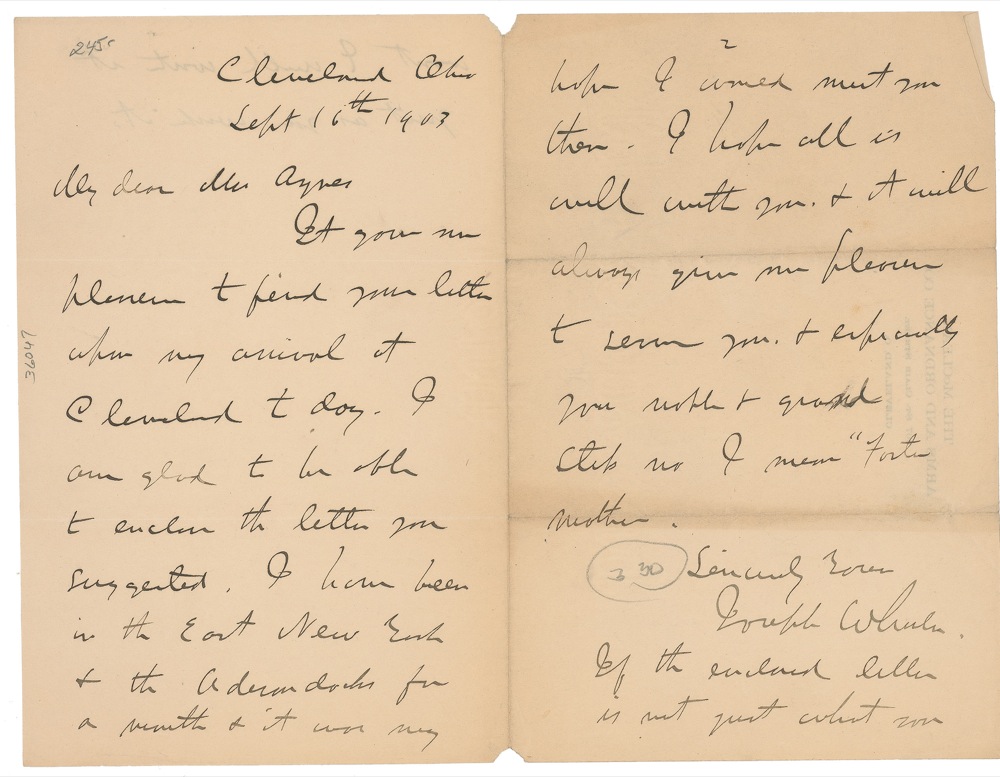 245
Cleveland Ohio
Sept 16th 1903
My dear Mrs Ayres
It gave me
pleasure to find your letter
upon my arrival at
Cleveland to day. I
am glad to be able
to enclose the letter you
suggested. I have been
in the East New York
& the Aderondacks for
a month & it was my
36047
2
hope I would meet you
there. I hope all is
well with you. & it will
always give me pleasure
to serve you. & especially
your noble & grand
Step no I mean "Foster
mother.
3 30
Sincerely Yours
Joseph Wheeler.
If the enclosed letter
is not just what you